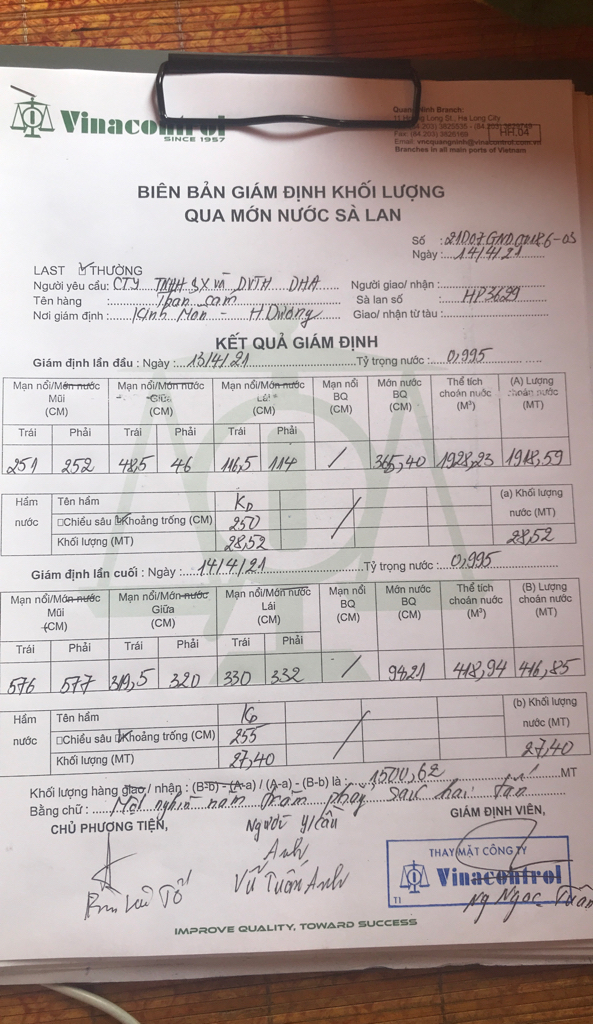 Vinacontrol
SINCE 1957
Branch:
Long St., Ha Long City
Fax: (84.203) 3826169
HH.04
Email: vncquangninh@vinacontrol.com.vn
Branches in all main ports of Vietnam
BIÊN BẢN GIÁM ĐỊNH KHỐI LƯỢNG
QUA MỚN NƯỚC SÀ LAN
Số :
Ngày : 14/4/21
LAST THƯỜNG
Người yêu cầu: CTY TNHH SX và DVTH DHA Người giao/ nhận :
Tên hàng : Than cám Sà lan số : HP3629
Nơi giám định : Kinh Môn - H Dương Giao/ nhận từ tàu :
KẾT QUẢ GIÁM ĐỊNH
Giám định lần đầu : Ngày : 13/4/21 Tỷ trọng nước : 0,995
Mạn nổi/Mớn nước Mạn nổi/Mớn nước Mạn nổi/Mớn nước Mạn nổi Mớn nước Thể tích (A) Lượng
Mũi Giữa Lái BQ BQ choán nước choán nước
(CM) (CM) (CM) (CM) (CM) (M³) (MT)
Trái Phải Trái Phải Trái Phải
251 252 48,5 46 116,5 114 / 365,40 1928,23 1918,59
Hầm Tên hầm (a) Khối lượng
nước Chiều sâu Khoảng trống (CM) 250 / nước (MT)
Khối lượng (MT) 28,52 28,52
Giám định lần cuối : Ngày : 14/4/21 Tỷ trọng nước : 0,995
Mạn nổi/Mớn nước Mạn nổi/Mớn nước Mạn nổi/Mớn nước Mạn nổi Mớn nước Thể tích (B) Lượng
Mũi Giữa Lái BQ BQ choán nước choán nước
(CM) (CM) (CM) (CM) (CM) (M³) (MT)
Trái Phải Trái Phải Trái Phải
576 577 319,5 320 330 332 / 94,21 418,94 416,85
Hầm Tên hầm (b) Khối lượng
nước Chiều sâu Khoảng trống (CM) 255 / nước (MT)
Khối lượng (MT) 27,40 27,40
Khối lượng hàng giao / nhận : (B-b) - (A-a) / (A-a) - (B-b) là : 1500,62 MT
Bằng chữ : Một nghìn năm trăm phẩy sáu hai tấn
CHỦ PHƯƠNG TIỆN, Người y/cầu GIÁM ĐỊNH VIÊN,
Anh
Vũ Tuấn Anh
THAY MẶT CÔNG TY
Vinacontrol
T1
Ng Ngọc Tuân
IMPROVE QUALITY, TOWARD SUCCESS